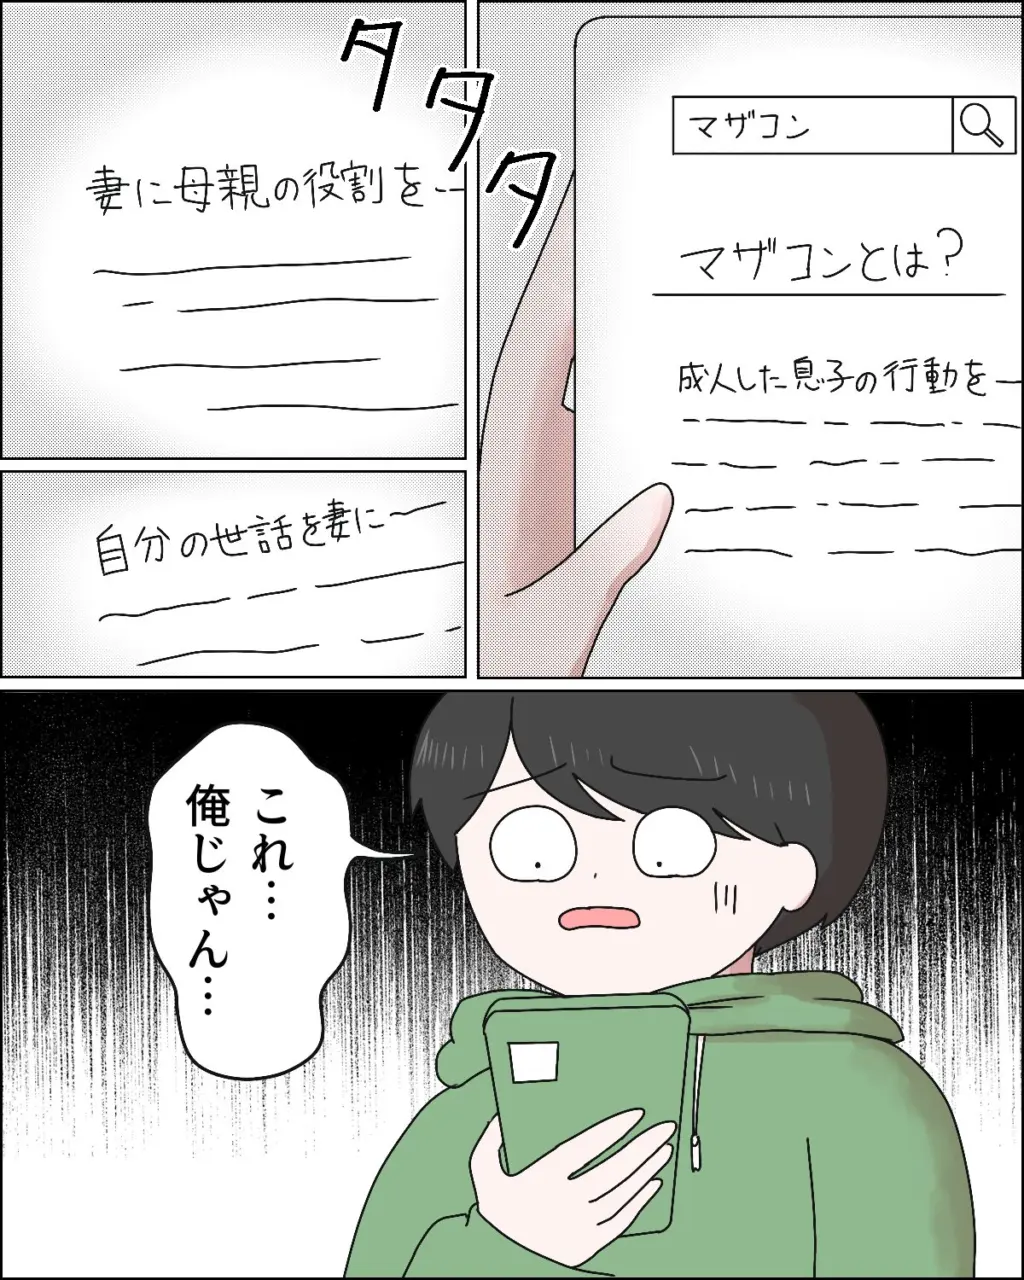 マザコン
マザコンとは?
成人した息子の行動を
タタタ
妻に母親の役割を…
自分の世話を妻に
これ…
俺じゃん…